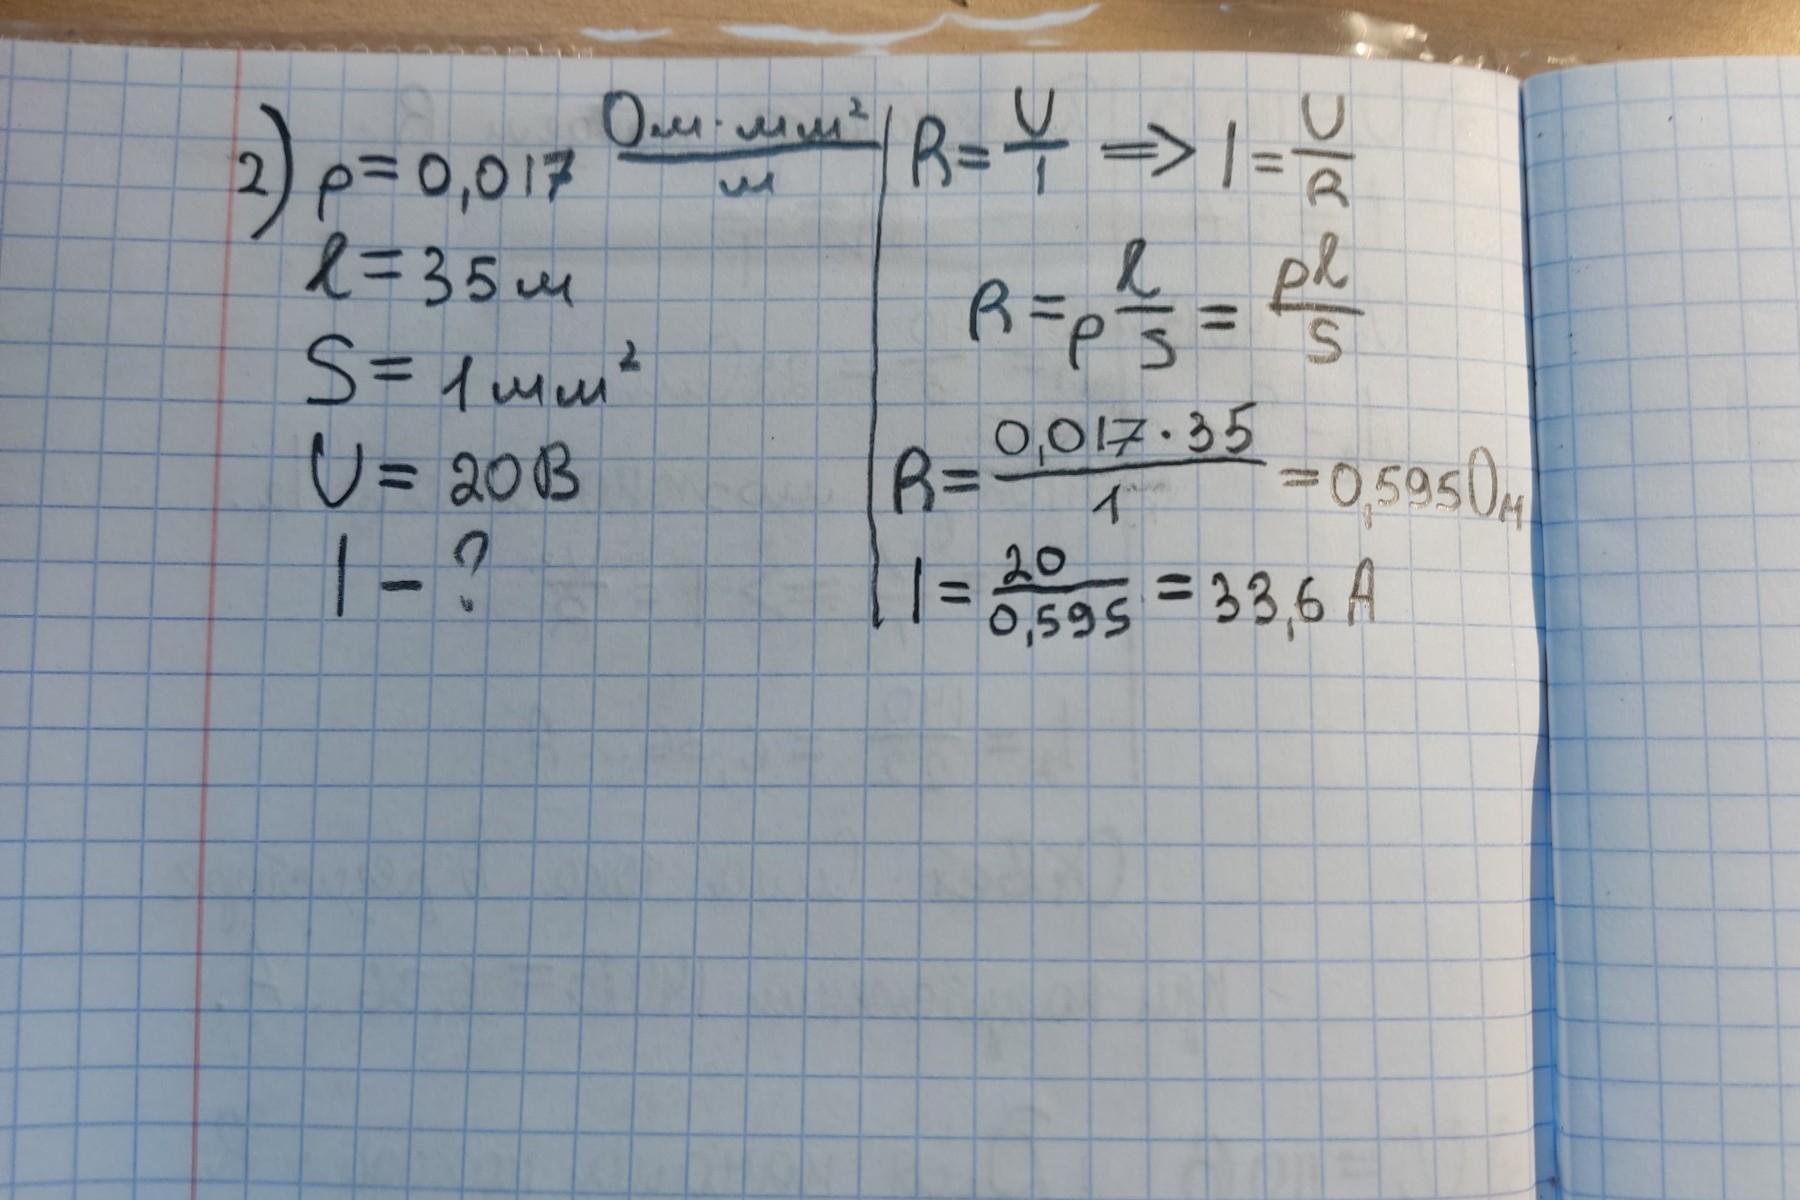 2) ρ = 0,017 Ом·мм²/м
l = 35 м
S = 1 мм²
U = 20 В
I - ?
R = U/I => I = U/R
R = ρ l/S = ρl/S
R = 0,017·35/1 = 0,595 Ом
I = 20/0,595 = 33,6 А